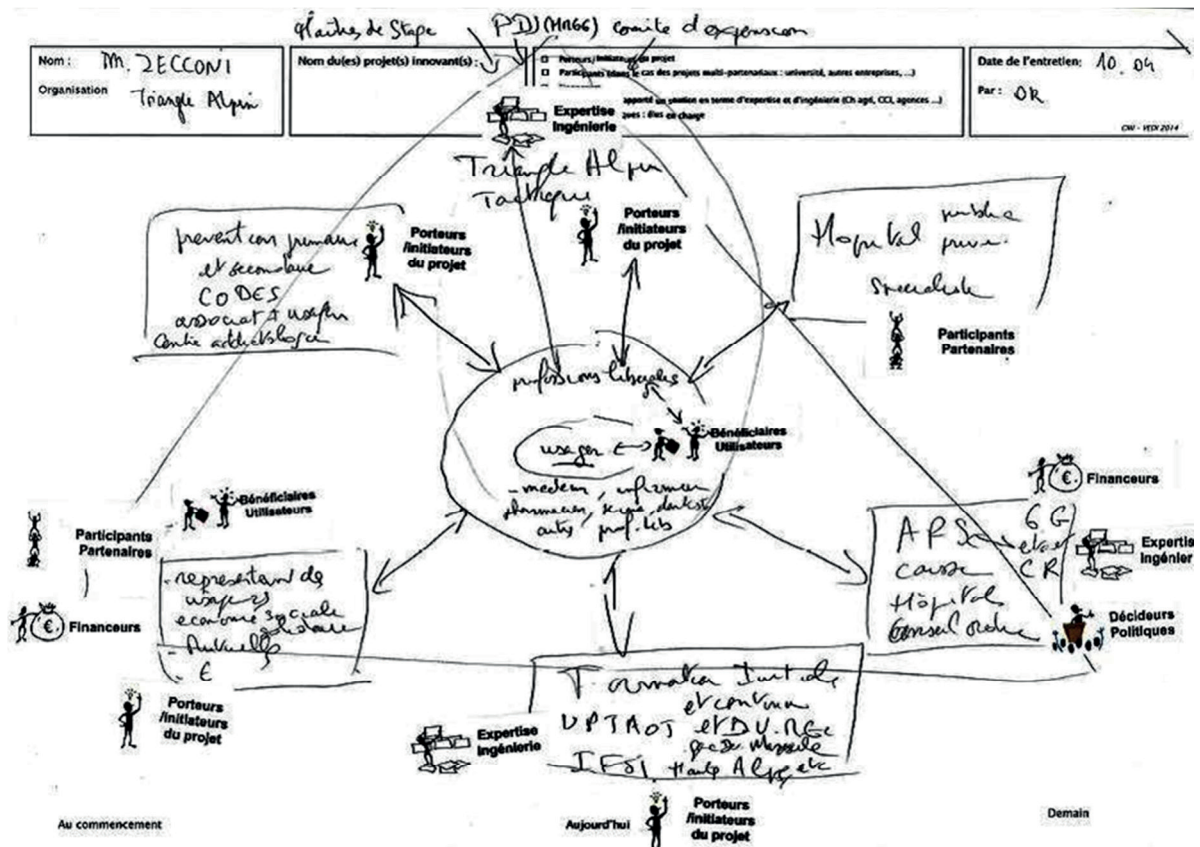 Maîtres de Stage
PDJ (MAGG) comite d'expension
Nom : M. ZECCONI
Organisation Triangle Alpin
Nom du(es) projet(s) innovant(s) :
Porteurs/initiateurs du projet
Participants (dans le cas des projets multi-partenariaux : université, autres entreprises, ...)
apporté un soutien en terme d'expertise et d'ingénierie (Ch agri, CCI, agences ...)
ques : élus en charge
Date de l'entretien: 10.04
Par : OR
CWI - VEDI 2014
Expertise
Ingénierie
Triangle Alpin
Porteurs
/initiateurs
du projet
prevention primaire
et secondaire
CODES
associat + usagers
Centre addictologie
Porteurs
/initiateurs
du projet
Hopital public
prive
Specialiste
Participants
Partenaires
professions liberales
usager
Bénéficiaires
Utilisateurs
- medecin, infirmier
pharmacien, dentiste
autres prof. lib
Bénéficiaires
Utilisateurs
Participants
Partenaires
Financeurs
- representant des
usagers
economie sociale
solidaire
- Mutuelles
- €
Porteurs
/initiateurs
du projet
Financeurs
ARS
CG
CR
caisse
Hôpital
Conseil ordre
Expertise
Ingénier
Décideurs
Politiques
Formation Initiale
et continue
et DU
IFSI Haute Alpes etc
Expertise
Ingénierie
Porteurs
/initiateurs
du projet
Au commencement
Aujourd'hui
Demain